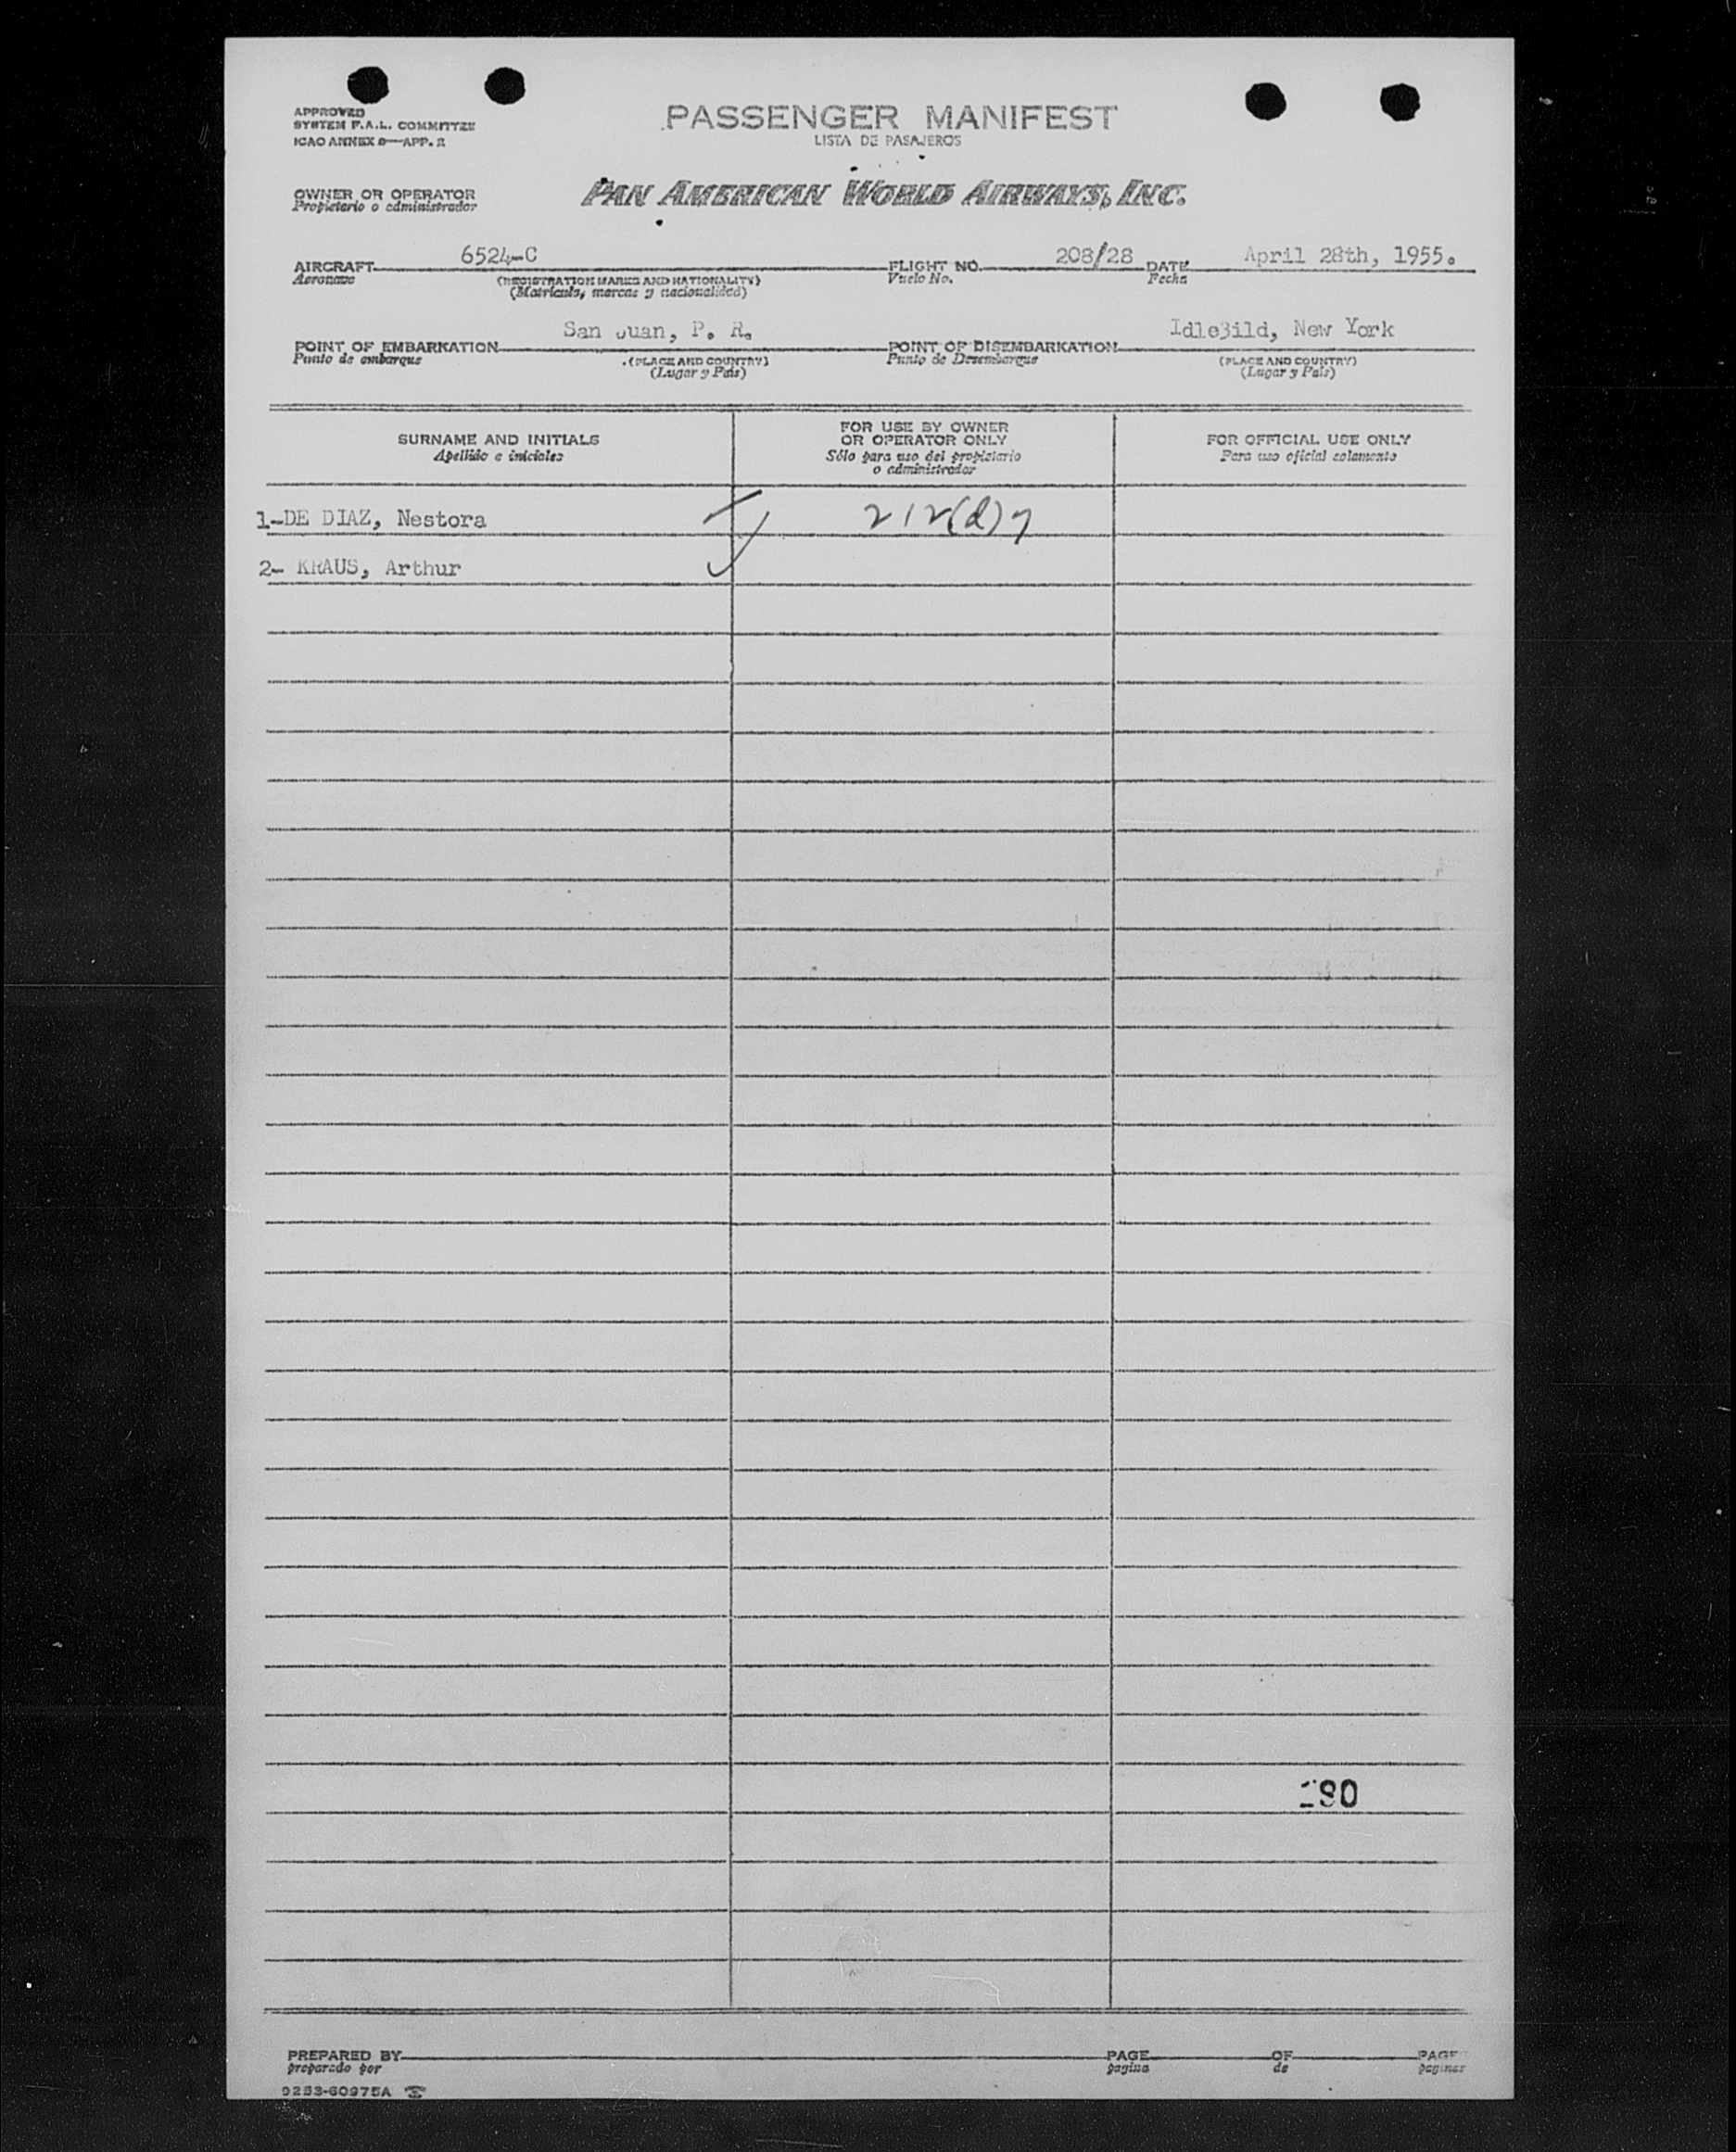 APPROVED
SYSTEM F.A.L. COMMITTEE
ICAO ANNEX 9—APP. 2
PASSENGER MANIFEST
LISTA DE PASAJEROS
OWNER OR OPERATOR
Propietario o administrador
PAN AMERICAN WORLD AIRWAYS, INC.
AIRCRAFT 6524-C FLIGHT NO. 208/28 DATE April 28th, 1955.
Aeronave (REGISTRATION MARKS AND NATIONALITY) Vuelo No. Fecha
(Matricula, marcas y nacionalidad)
POINT OF EMBARKATION San Juan, P. R. POINT OF DISEMBARKATION Idle3ild, New York
Punto de embarque (PLACE AND COUNTRY) Punto de Desembarque (PLACE AND COUNTRY)
(Lugar y País) (Lugar y País)
SURNAME AND INITIALS
Apellido e iniciales
FOR USE BY OWNER
OR OPERATOR ONLY
Sólo para uso del propietario
o administrador
FOR OFFICIAL USE ONLY
Para uso oficial solamente
1-DE DIAZ, Nestora 212(d)7
2- KRAUS, Arthur
PREPARED BY PAGE OF PAGES
preparado por pagina de paginas
9253-60975A